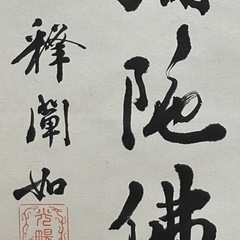 陀佛
釋闡如